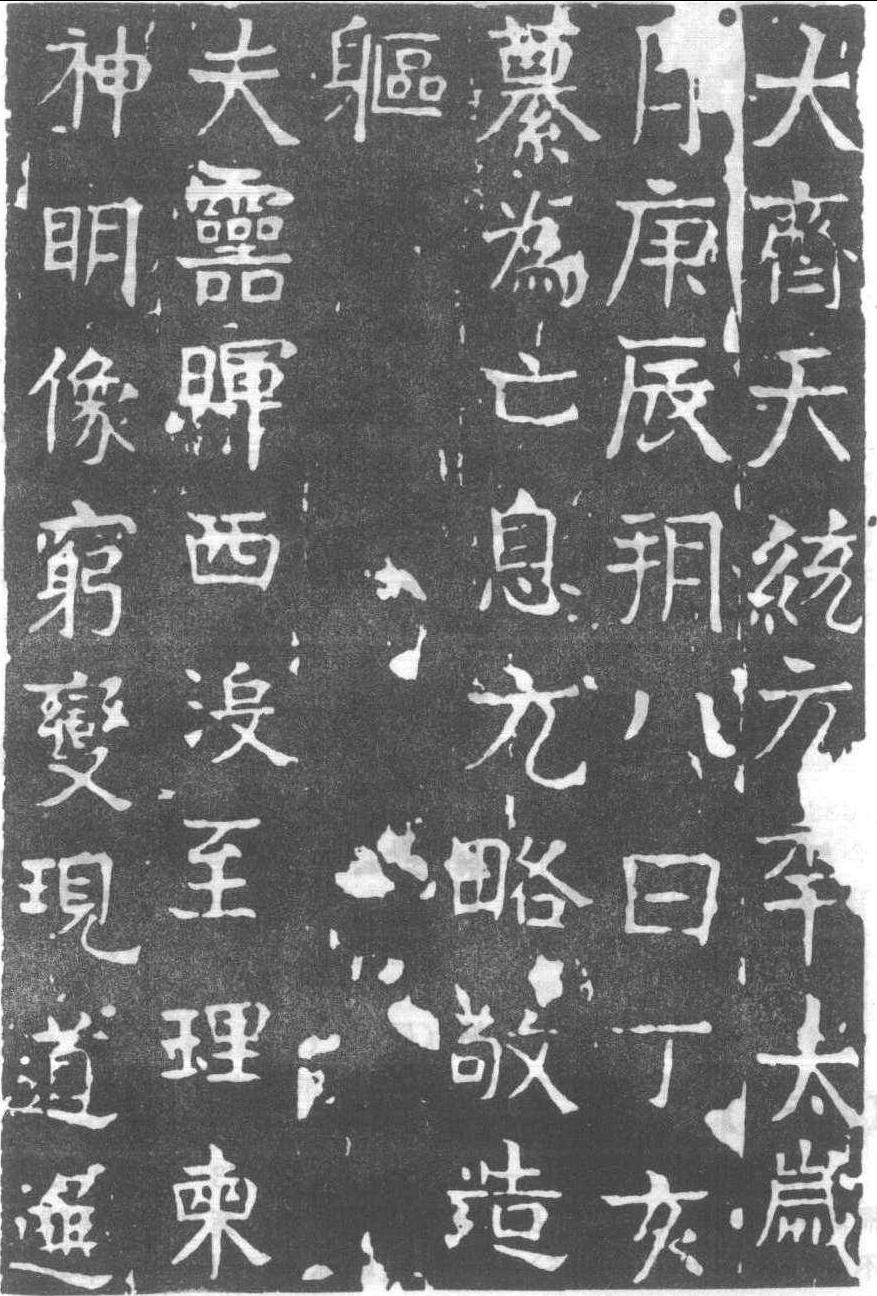 大齊天統元年太歲
月庚辰朔八日丁亥
纂為亡息元略敬造
軀
夫靈暉西没至理東
神明像窮變現道